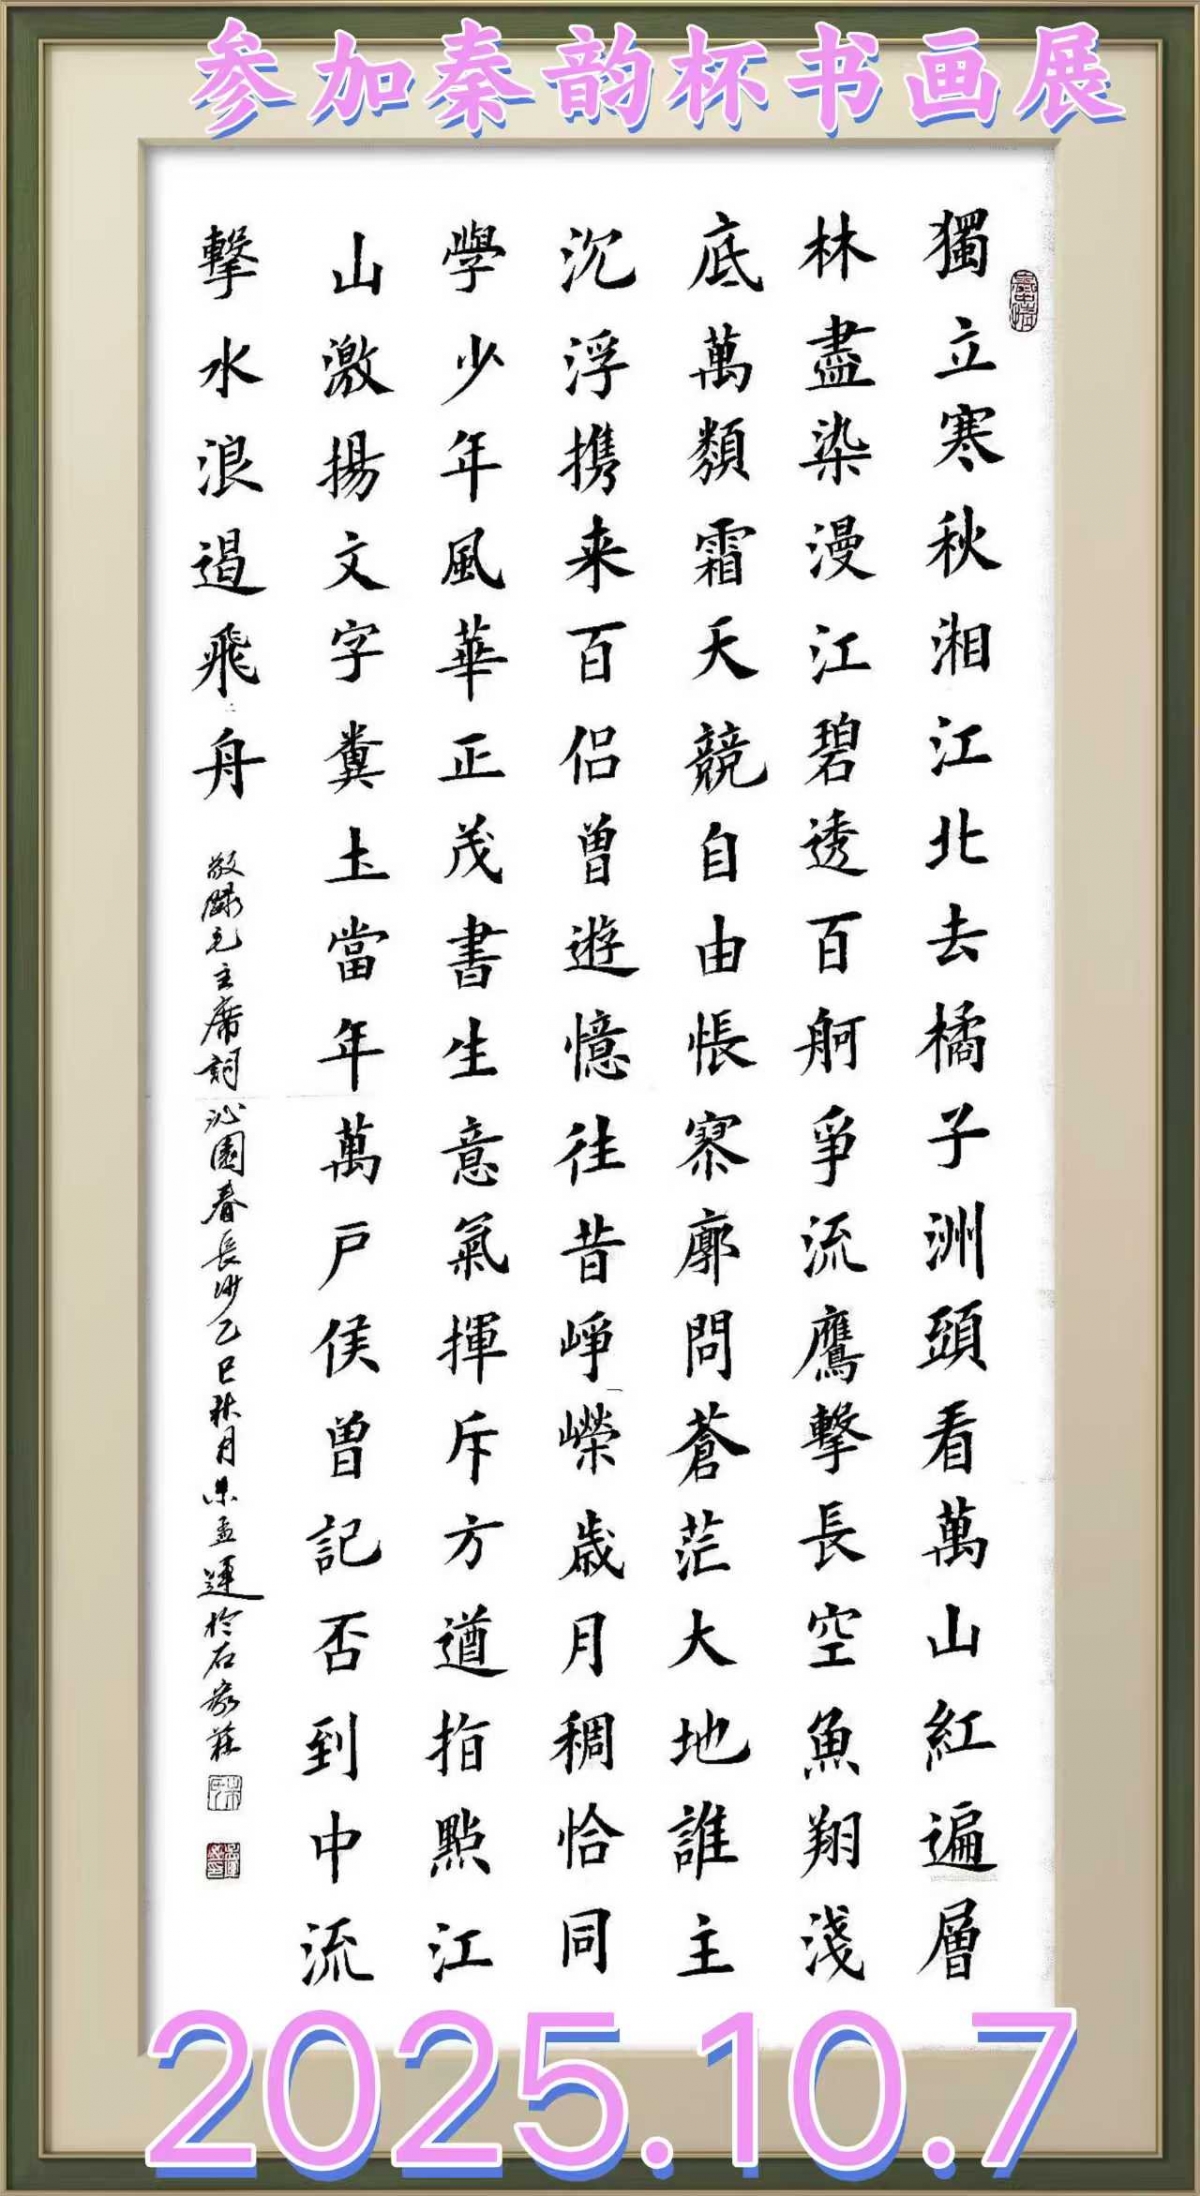 参加秦韵杯书画展
獨立寒秋湘江北去橘子洲頭看萬山紅遍層
林盡染漫江碧透百舸爭流鷹擊長空魚翔淺
底萬類霜天競自由悵寥廓問蒼茫大地誰主
沉浮携来百侣曾遊憶往昔崢嶸歲月稠恰同
學少年風華正茂書生意氣揮斥方遒指點江
山激揚文字糞土當年萬戶侯曾記否到中流
擊水浪遏飛舟
敬録毛主席詞沁園春長沙乙巳秋月朱孟運於石家莊
2025.10.7